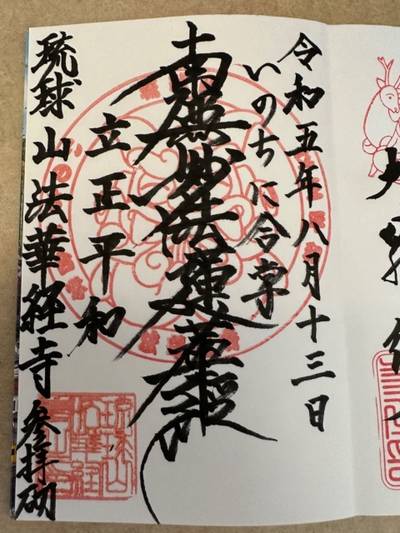 令和五年八月十三日
いのちに合掌
南無妙法蓮華経
立正平和
琉球山法華経寺
参拝砌